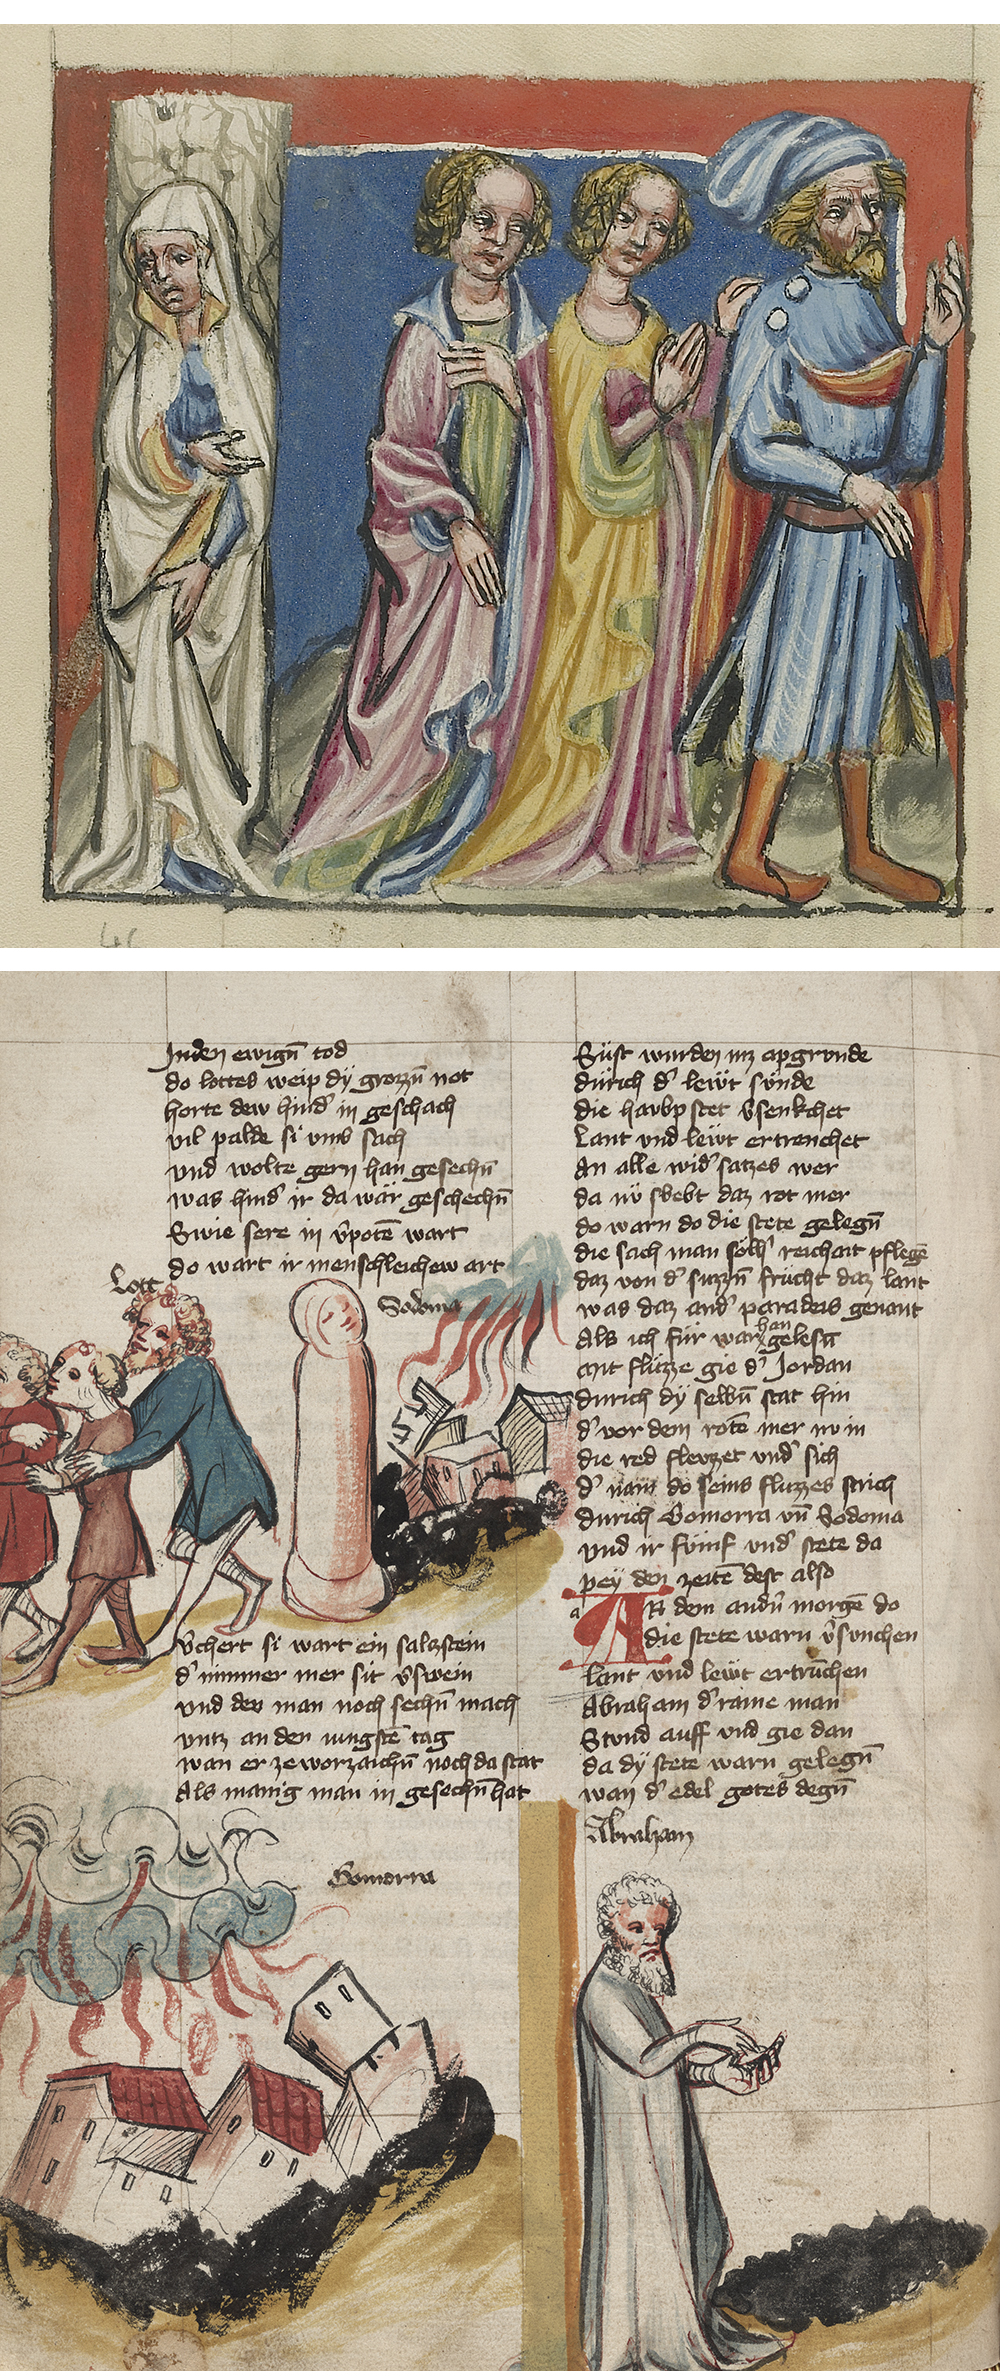 Inden ewign̄ tod
do lottes weip dÿ grozzn̄ not
horte dew hind' in geschach
vil palde si vmb sach
vnd wolte gern han gesechn̄
was hind' ir da wär geschechn̄
Swie sere in v̄potē wart
do wart ir menschleichew art
Lott
Sodoma
v̄chert si wart ein salzstein
d' nimmer mer sit v̄swein
vnd den man noch sechn̄ mach
vntz an den iungstē tag
wan er ze worzaichn̄ noch da stat
Als manig man in gesechn̄ hat
Gomorra
Süst wurden inz apgrunde
dürich d' lewt sünde
die haubpstet v̄senkchet
Lant vnd lewt ertrenchet
An alle wid' satzes wer
da nv swebt daz rot mer
do warn do die stete gelegn̄
die sach man sölh' reichait pflegē
daz von d' suzzn̄ frücht daz lant
was daz and' paradeis genant
Als ich für war han gelesn̄
mit flüzze gie d' Jordan
durich dÿ selbn̄ stat hin
d' vor dem rotē mer nv in
die red flewzet vnd' sich
d' nam do seins fluzzes strich
durich Gomorra vn̄ Sodoma
vnd ir fümf vnd' stete da
peÿ den zeitē dest also
An dem andn̄ morgē do
die stete warn v̄sunchen
lant vnd lewt ertrūchen
Abraham d' raine man
Stund auff vnd gie dan
da dÿ stete warn gelegn̄
wan d' edel gotes degn̄
Abraham